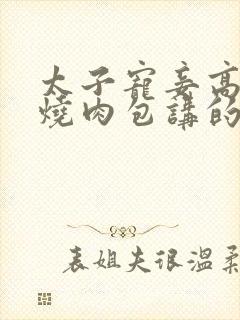 太子寵妾高
燒肉包講的
表姐夫很溫柔